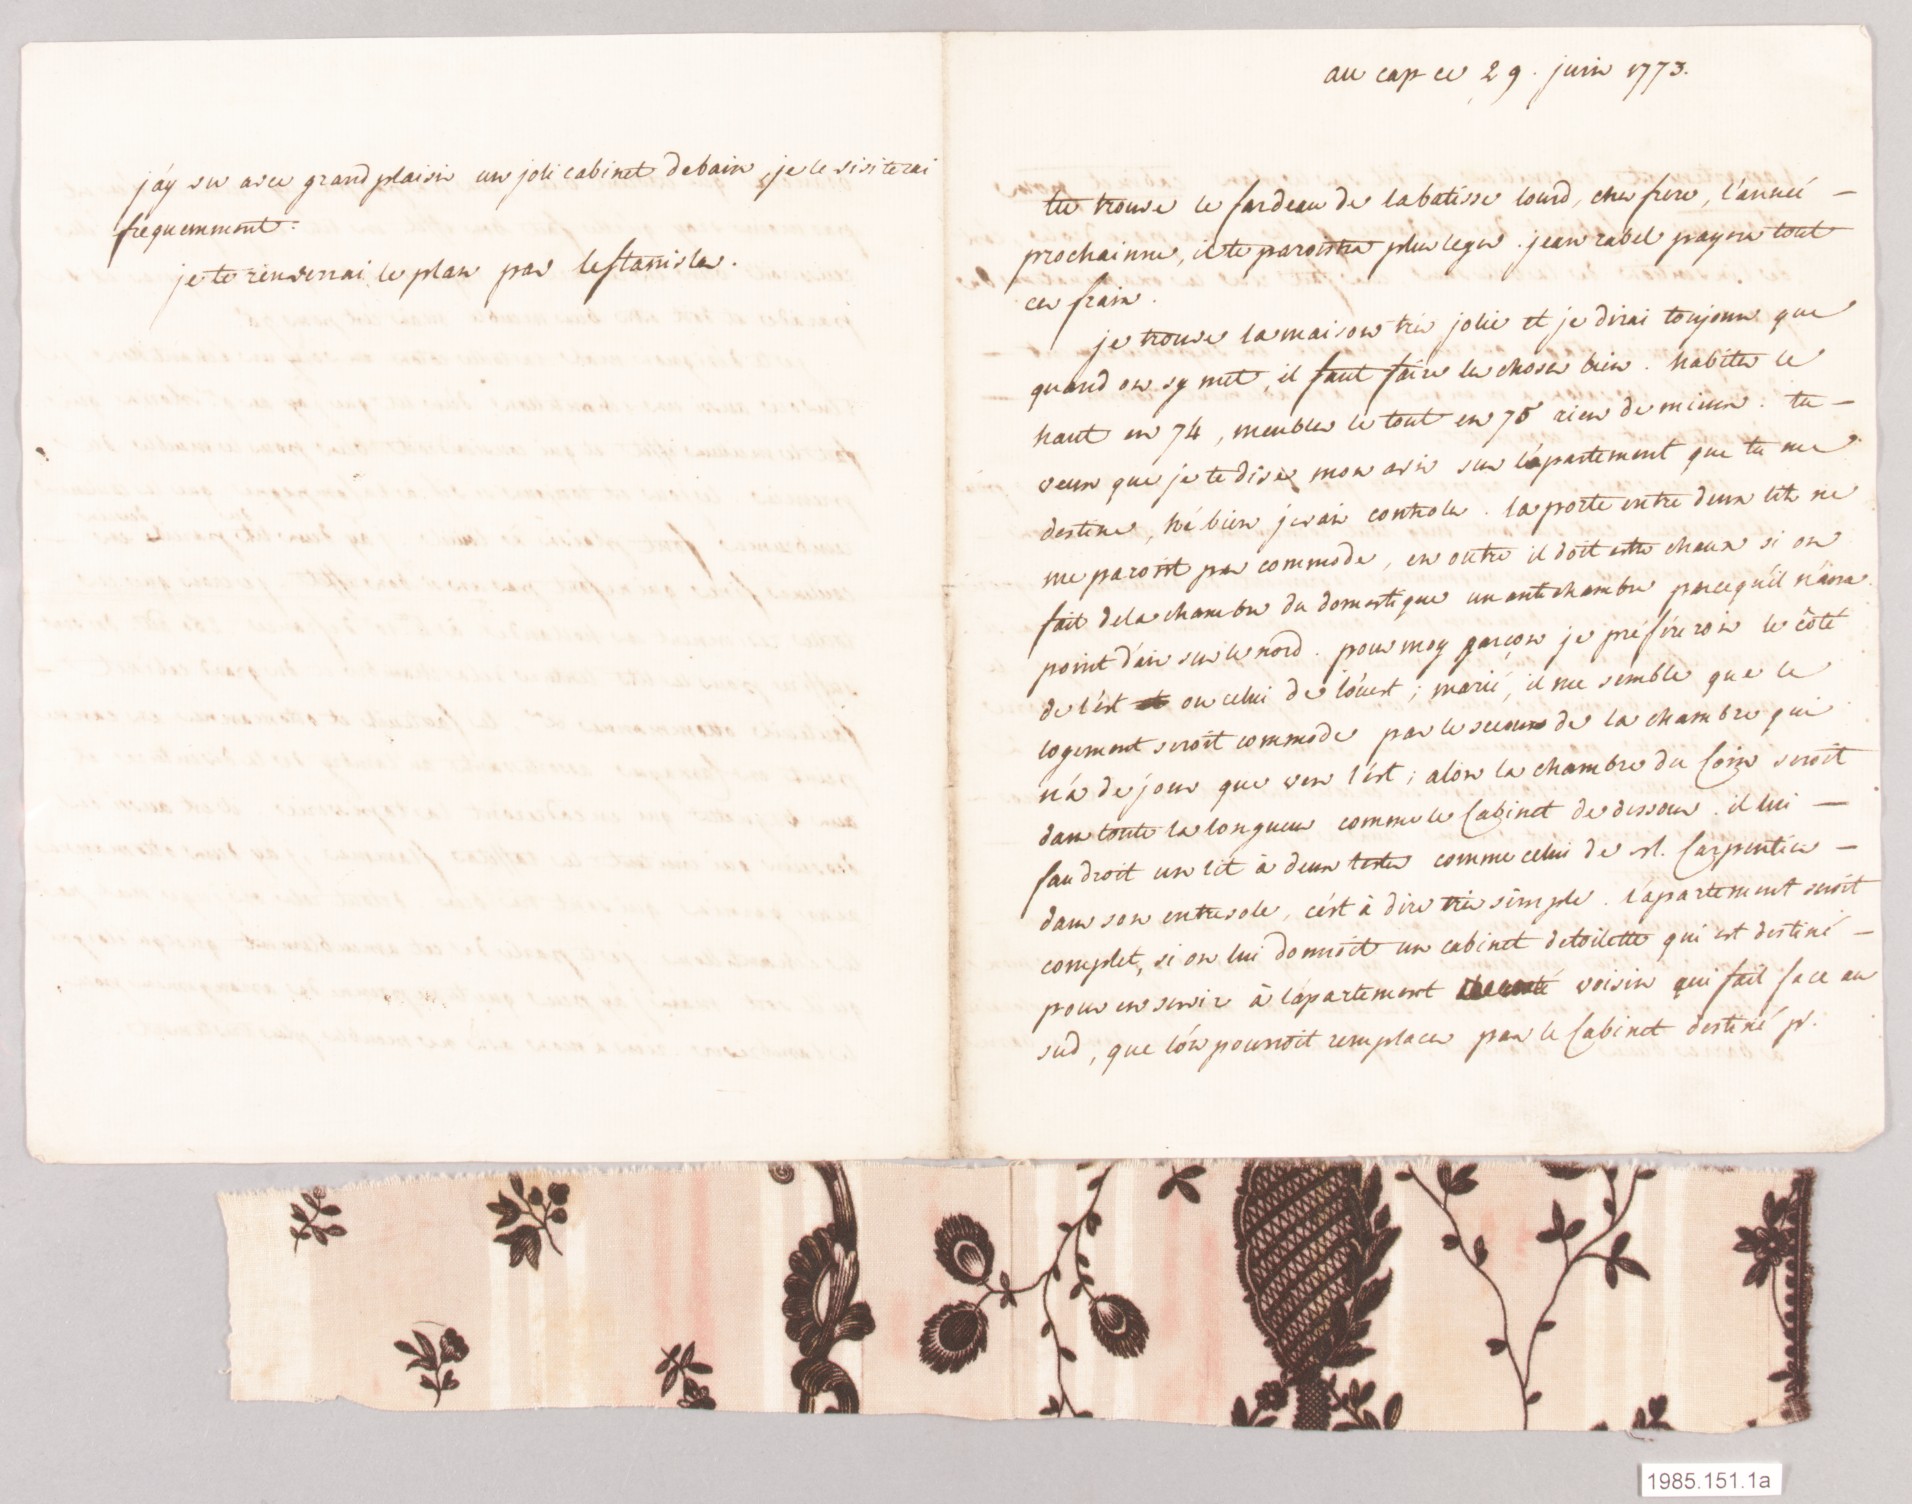 j'ay vu avec grand plaisir un joli cabinet debain, je le visiterai
frequemment.
je te renverrai le plan par lestanislas.
au cap ce 29. juin 1773.
tu trouve le fardeau de labatisse lourd, cher frere, l'année
prochainne, il te paroistra plus leger. jean rabel payera tout
ces frais.
je trouve lamaison très jolie et je dirai toujours que
quand on sy met, il faut faire les choses bien. habiter le
haut en 74, meubler le tout en 75 rien de mieux. tu
veux que je te dise mon avis sur l'apartement que tu me
destine, hé bien je vais controler. la porte entre deux lits ne
me paroist pas commode, en outre il doit estre chaux si on
fait dela chambre du domestique un antichambre parcequ'il n'aura
point d'air sur le nord. pour moy garçon je préfereroís le côté
de l'est ou celui de l'ouest; marié, il me semble que le
logement seroit commode par le secours de la chambre qui
n'a de jour que vers l'est; alors la chambre du Coin seroit
dans toute la longueur comme le Cabinet de dessous. il lui
faudroit un lit à deux testes comme celui de M. Carpentier
dans son entresole, c'est à dire très simple. l'apartement seroit
complet, si on lui donnoit un cabinet detoilette qui est destiné
pour en servir à l'apartement voisin qui fait face au
sud, que l'ón pourroit remplacer par le Cabinet destiné pr.
1985.151.1a